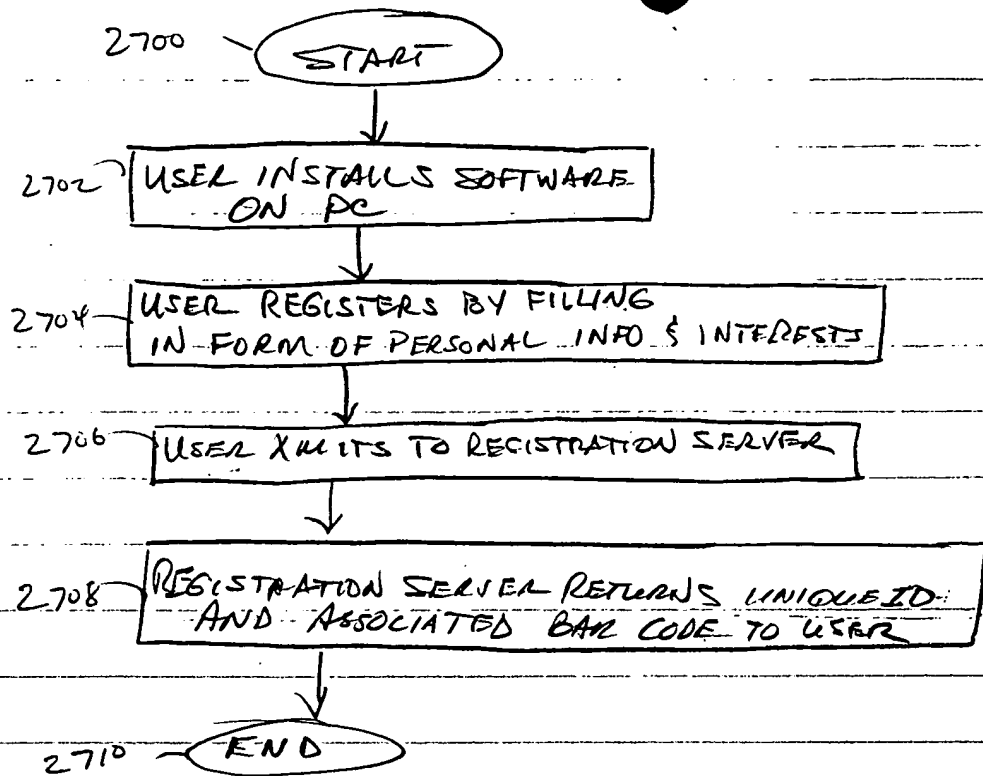 2700 START
2702 USER INSTALLS SOFTWARE
ON PC
2704 USER REGISTERS BY FILLING
IN FORM OF PERSONAL INFO & INTERESTS
2706 USER XMITS TO REGISTRATION SERVER
2708 REGISTRATION SERVER RETURNS UNIQUE ID
AND ASSOCIATED BAR CODE TO USER
2710 END